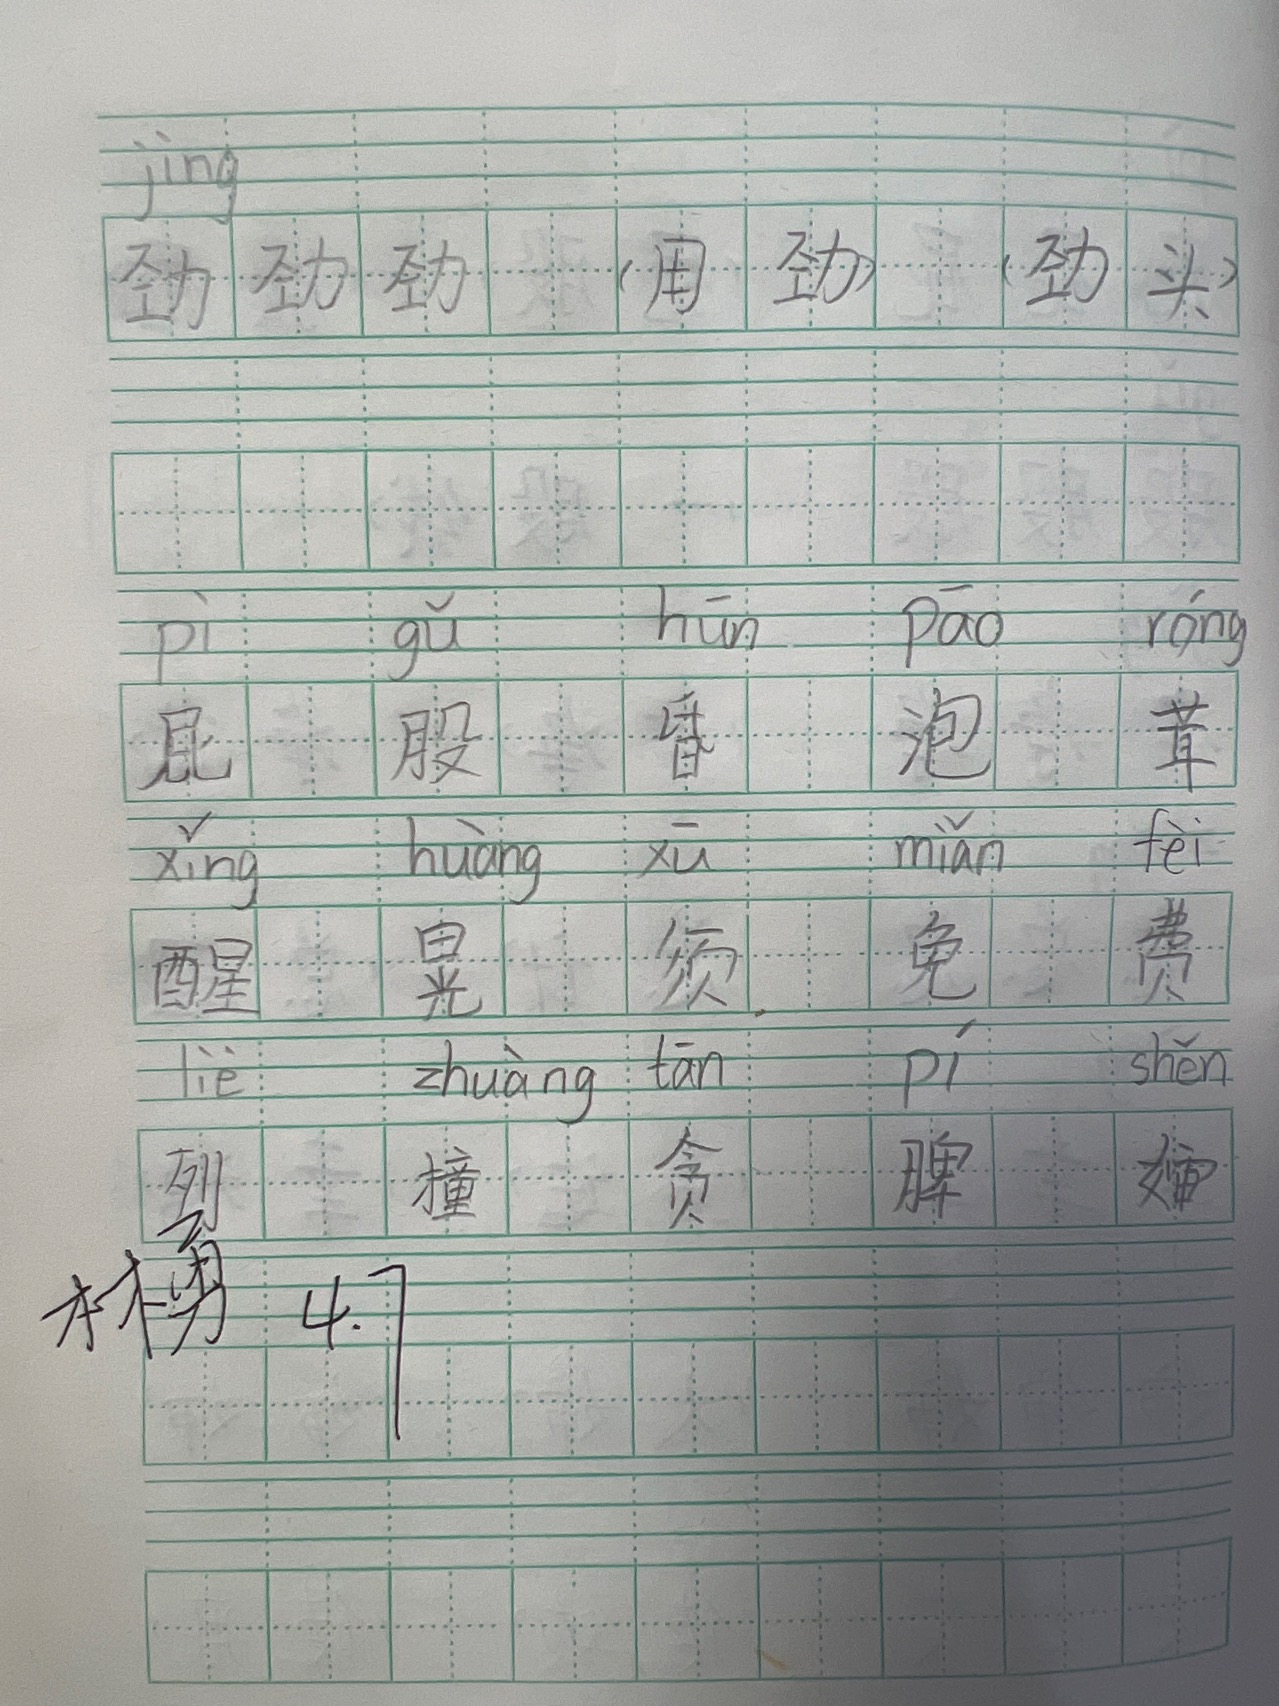 jìng
劲 劲 劲 （用 劲） （劲 头）
pì gǔ hūn pāo róng
屁 股 昏 泡 茸
xǐng huàng xū miǎn fèi
醒 晃 须 免 费
liè zhuàng tān pí shěn
列 撞 贪 脾 婶
林勇 4.7